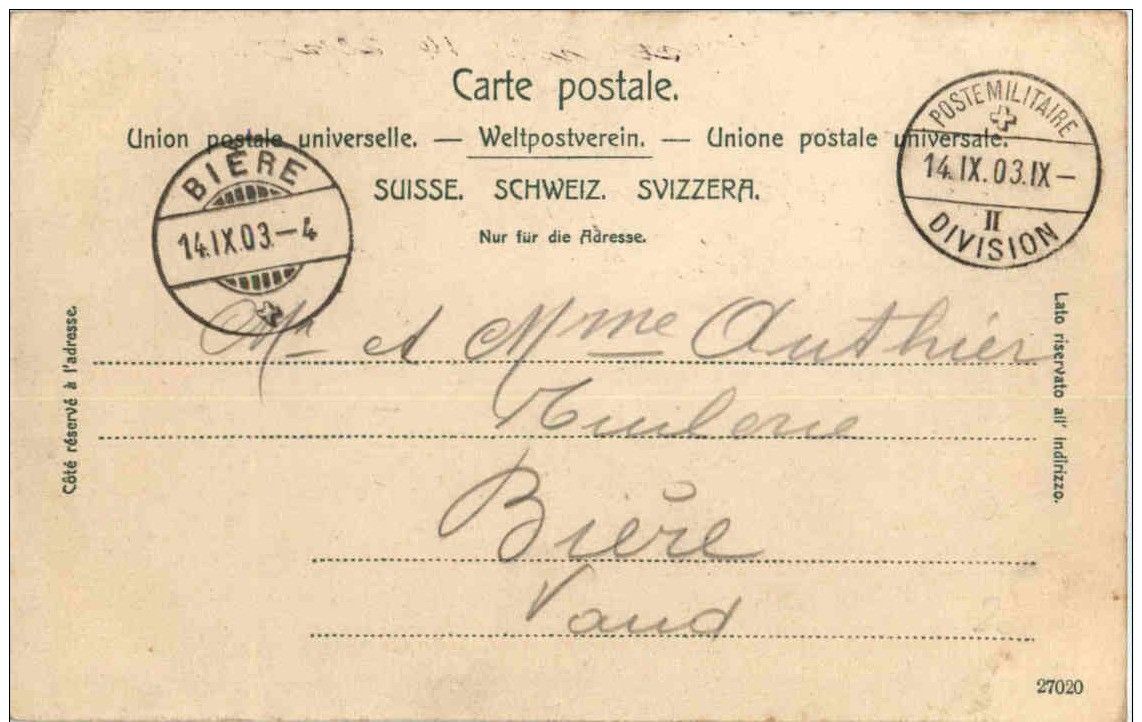 Carte postale.
Union postale universelle. — Weltpostverein. — Unione postale universale.
SUISSE. SCHWEIZ. SVIZZERA.
Nur für die Adresse.
BIÈRE
14.IX.03.–4
POSTE MILITAIRE
14.IX.03.IX–
II
DIVISION
Côté réservé à l'adresse.
Mr et Mme Authier
Tuilerie
Bière
Vaud
Lato riservato all' indirizzo.
27020